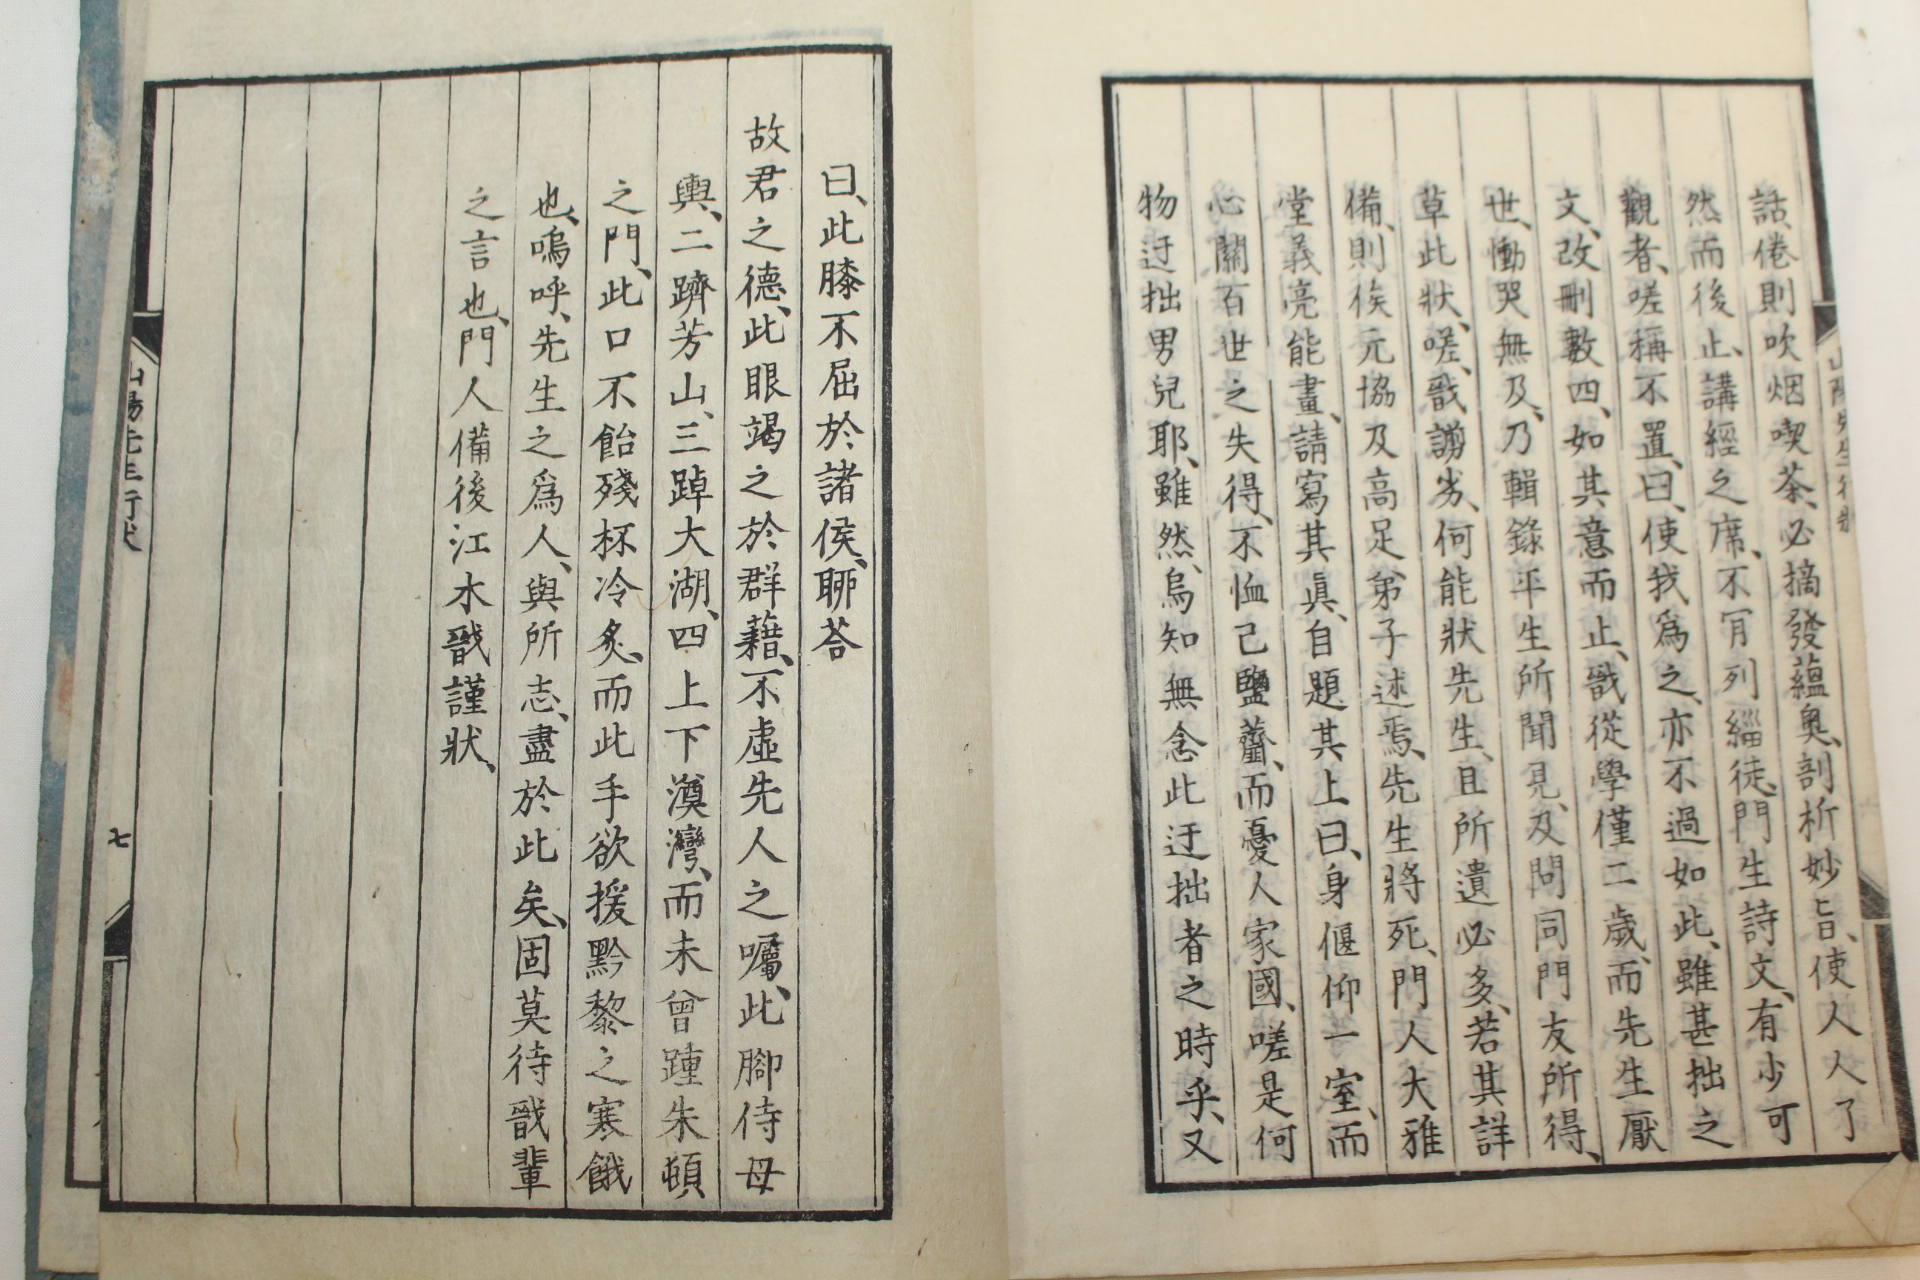 話、倦則吹烟喫茶、必摘發蘊奧、剖析妙旨、使人人了
然而後止、講經之席、不肎列緇徒、門生詩文、有少可
觀者、嗟稱不置、曰、使我爲之、亦不過如此、雖甚拙之
文、改刪數四、如其意而止、戩從學僅二歲、而先生厭
世、慟哭無及、乃輯錄平生所聞見、及問同門友所得、
草此狀、嗟、戩謭劣、何能狀先生、且所遺必多、若其詳
備、則俟元協及高足弟子述焉、先生將死、門人大雅
堂義亮能畫、請寫其眞、自題其上曰、身偃仰一室、而
心關百世之失得、不恤己鹽虀、而憂人家國、嗟是何
物迂拙男兒耶、雖然、烏知無念此迂拙者之時乎、又
曰、此膝不屈於諸侯、聊荅
故君之德、此眼竭之於群藉、不虛先人之囑、此腳侍母
輿、二躋芳山、三踔大湖、四上下澱灣、而未曾踵朱頓
之門、此口不飴殘杯冷炙、而此手欲援黔黎之寒餓
也、嗚呼、先生之爲人、與所志、盡於此矣、固莫待戩輩
之言也、門人備後江木戩謹狀、
山陽先生行狀
七